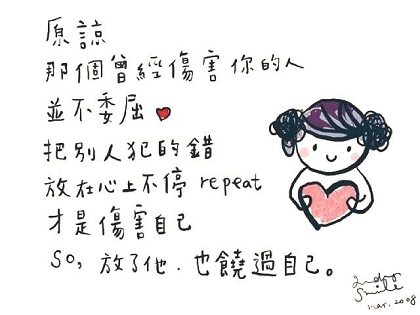 原諒
那個曾經傷害你的人
並不委屈
把別人犯的錯
放在心上不停 repeat
才是傷害自己
so, 放了他.也饒過自己。
Smile
mar. 2008